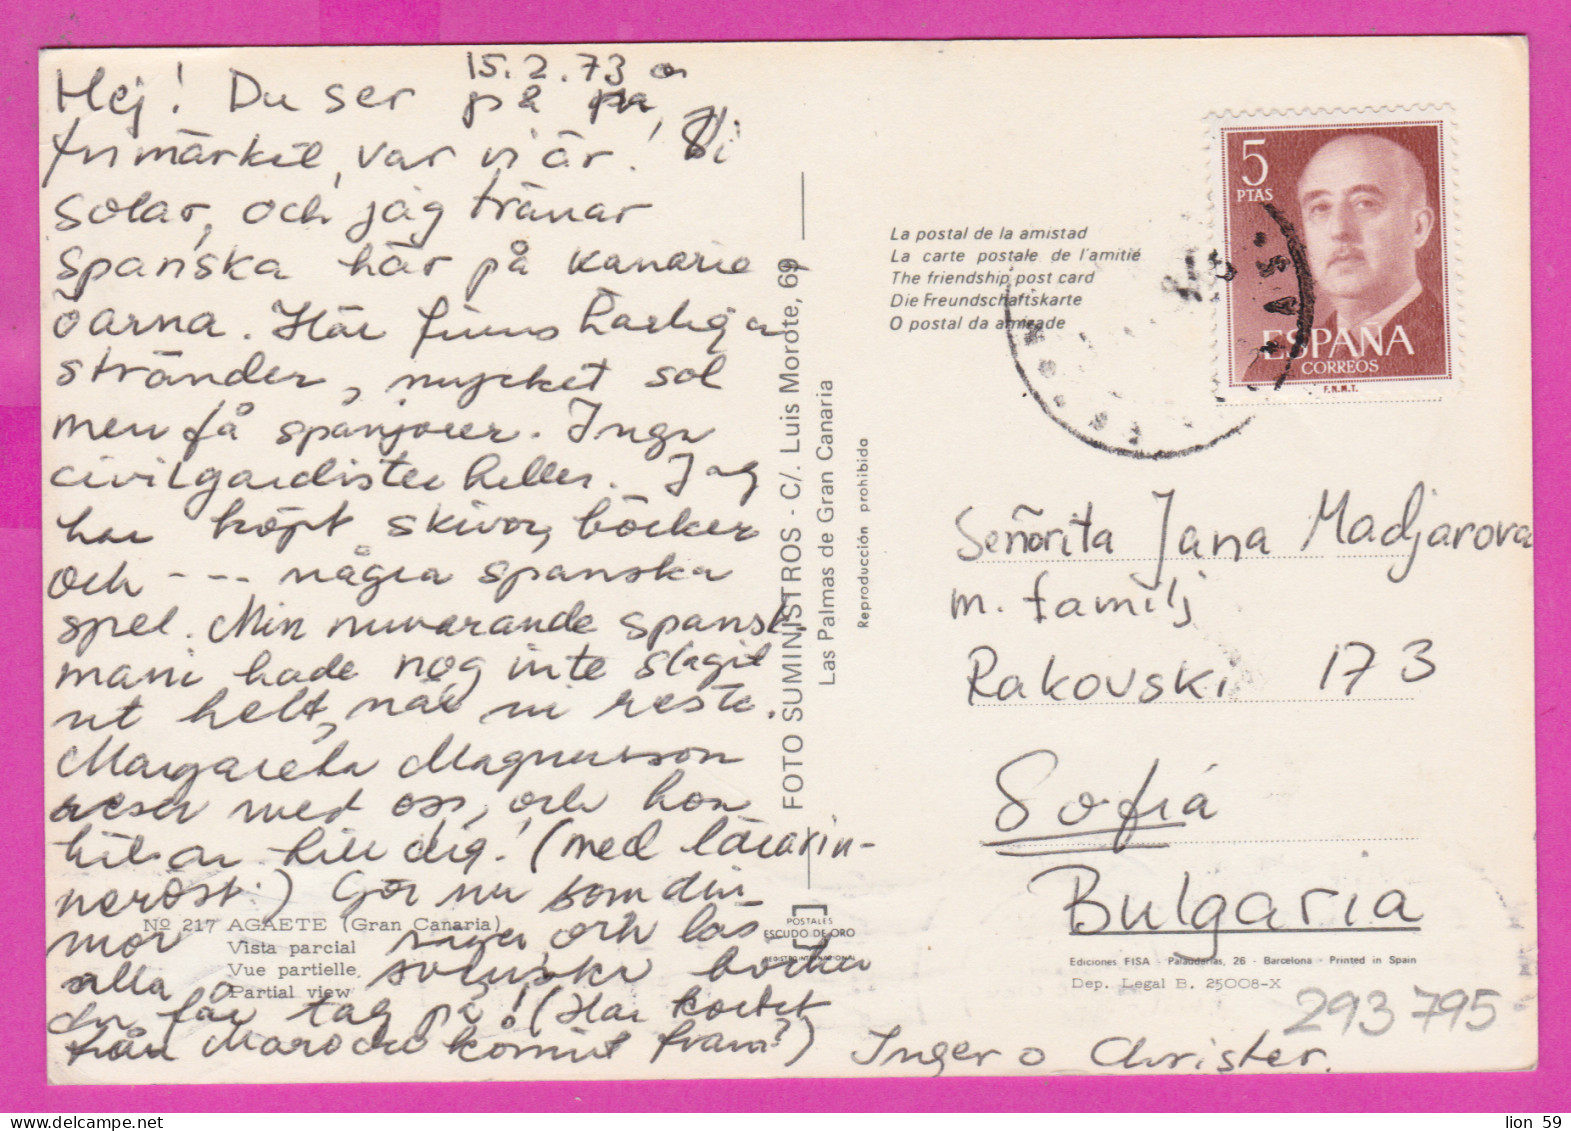 15.2.73
Hej! Du ser på
frimärket, var vi är! Vi
solar, och jag tränar
spanska här på kanarie
öarna. Här finns härliga
stränder, mycket sol
men få spanjorer. Inga
civilgardister heller. Jag
har köpt skivor, böcker
och --- några spanska
spel. Min nuvarande spansk
mani hade nog inte slagit
ut helt, när vi reste.
Margareta Magnusson
reser med oss, och hon
hälsar till dig! (med lärarin-
neröst.) Gör nu som din
mor säger och läs
alla svenska böcker
du får tag på! (Har kortet
från Marocko kommit fram?) Inger o Christer.
Nº 217 AGAETE (Gran Canaria)
Vista parcial
Vue partielle
Partial view
FOTO SUMINISTROS - C/. Luis Morote, 69
Las Palmas de Gran Canaria
Reproducción prohibida
POSTALES
ESCUDO DE ORO
REGISTRO INTERNACIONAL
La postal de la amistad
La carte postale de l'amitié
The friendship post card
Die Freundschaftskarte
O postal da amizade
5
PTAS
ESPAÑA
CORREOS
F.N.M.T.
Señorita Jana Madjarova
m. familj
Rakovski 173
Sofiá
Bulgaria
Ediciones FISA - Palauderias, 26 - Barcelona - Printed in Spain
Dep. Legal B. 25008-X
293795
lion 59